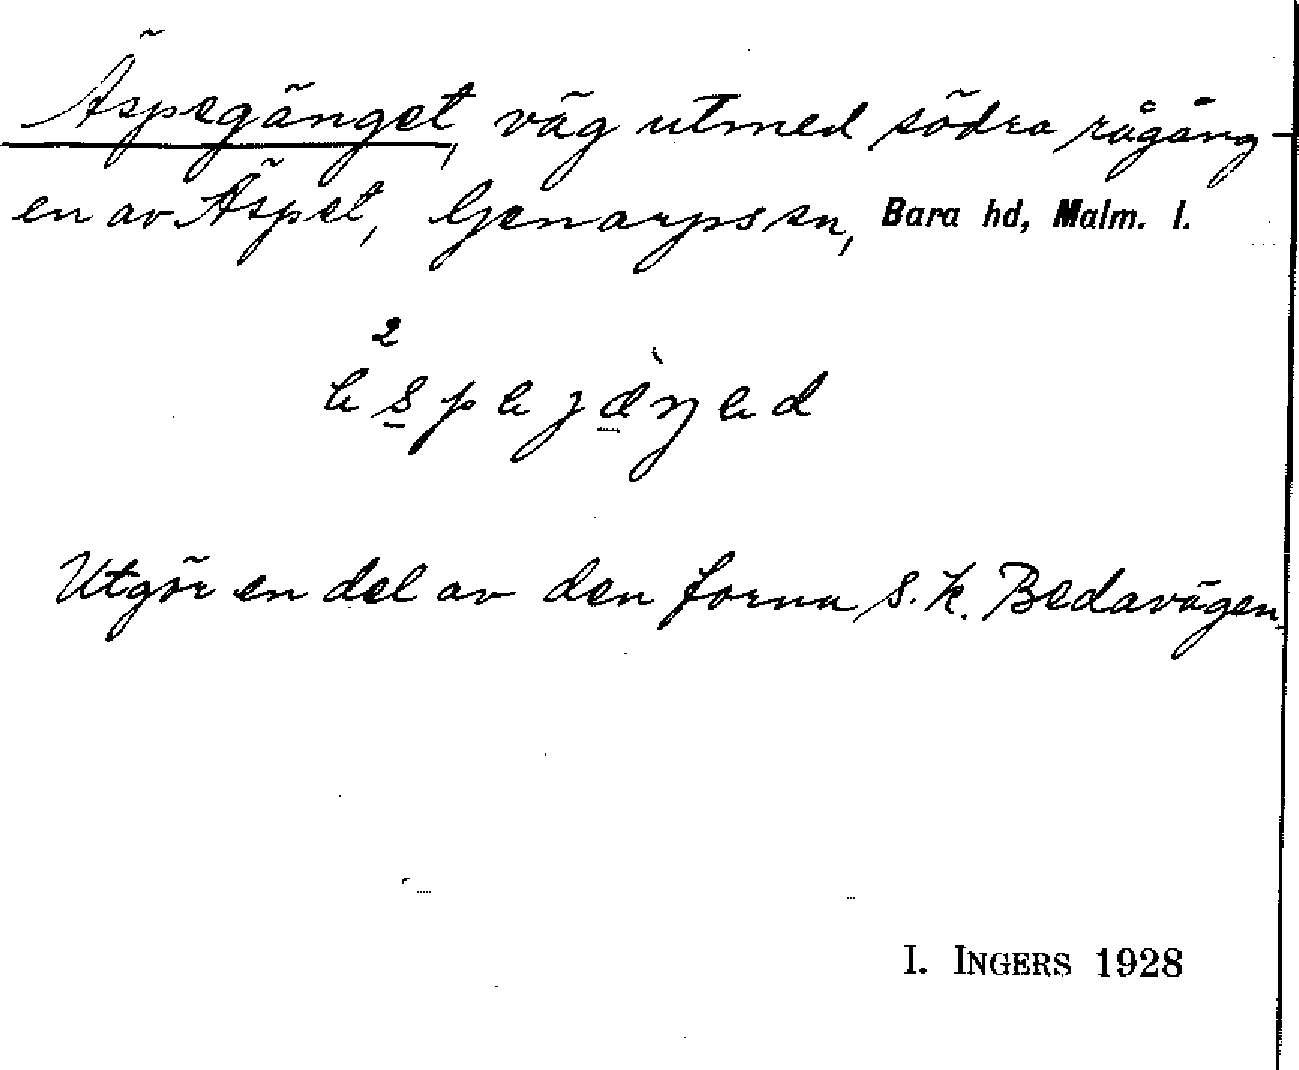 Äspegänget, väg utmed södra rågång-
en av Äspet, Genarps sn, Bara hd, Malm. l.
Utgör en del av den forna s.k. Bedavägen.
I. INGERS 1928